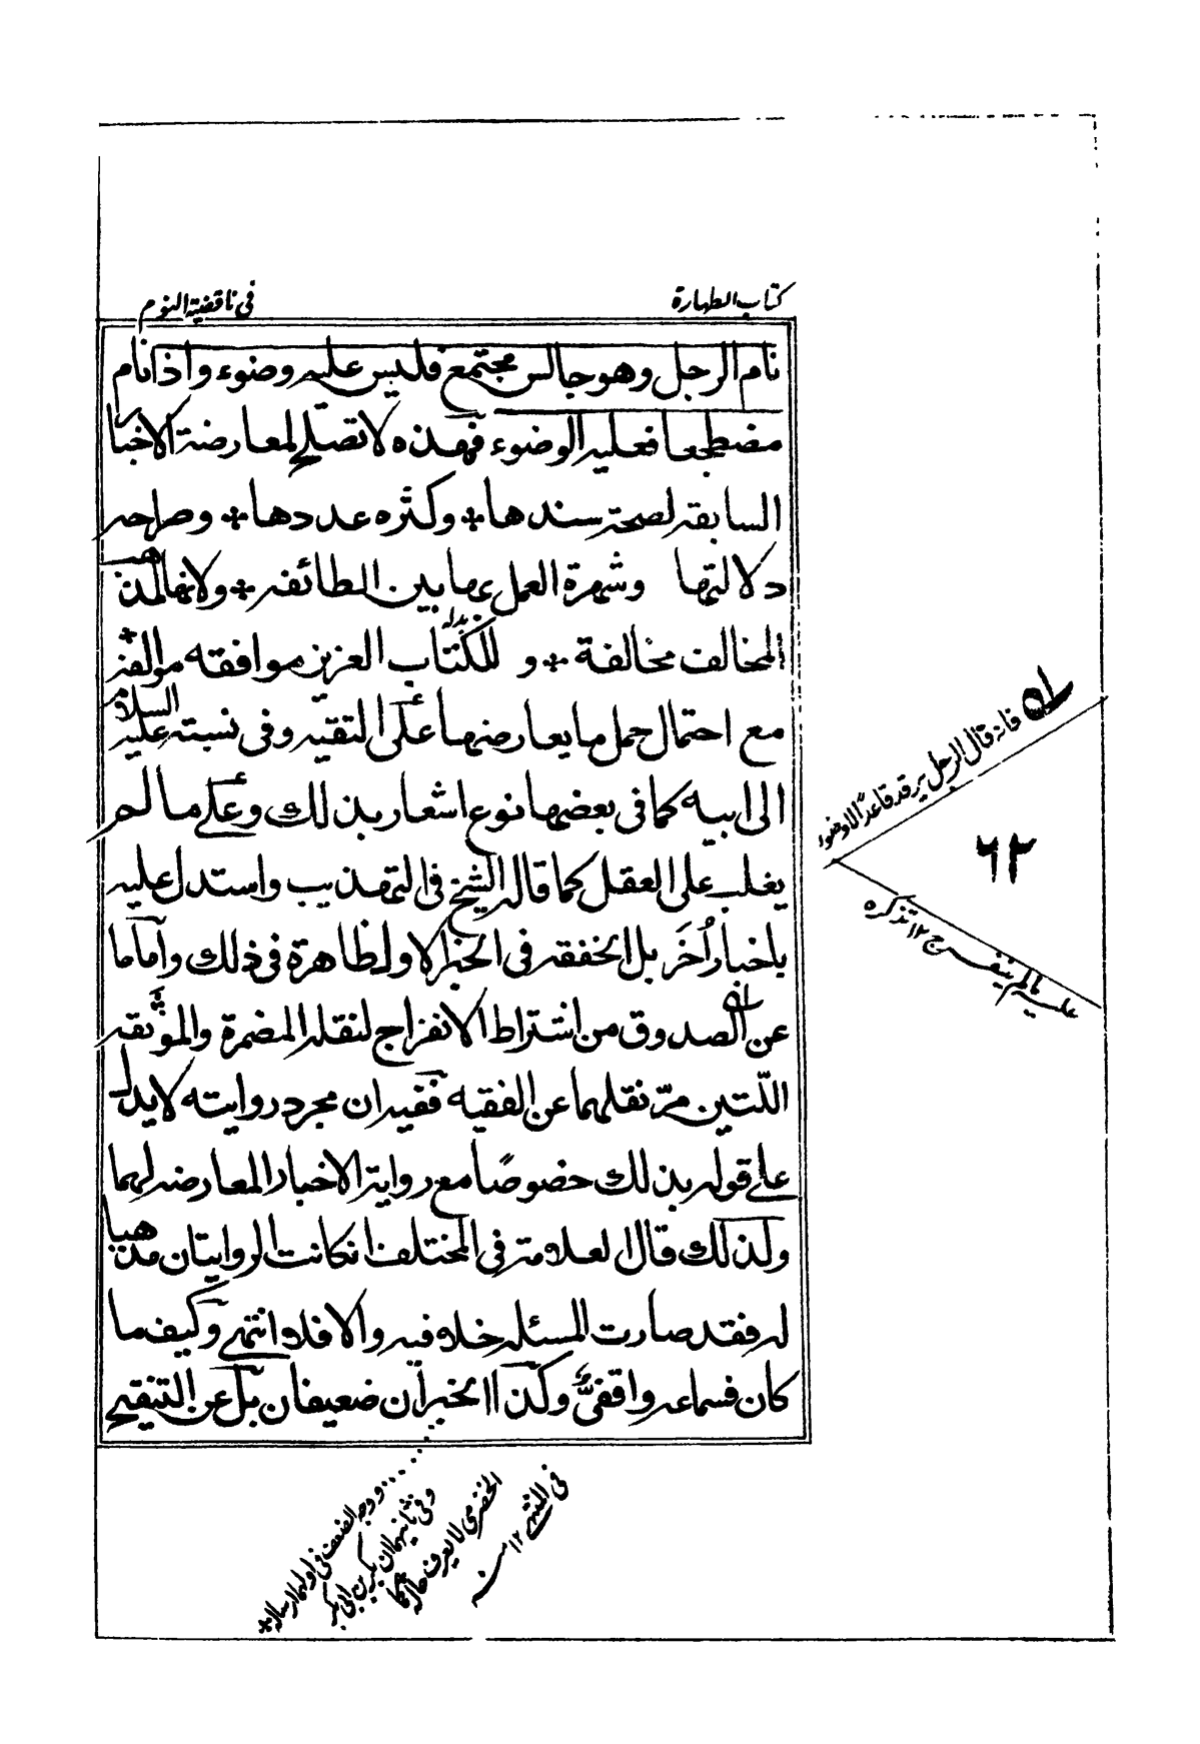 كتاب الطهارة
فى ناقضية النوم
نام الرجل وهو جالس مجتمع فليس عليه وضوء واذا نام
مضطجعا فعليه الوضوء فهذه لا تصلح لمعارضة الاخبا
السابقة لصحة سندها * وكثره عددها * وصراحه
دلالتها وشهرة العمل بها بين الطائفه * ولانها لمذهب
المخالف مخالفة * و للكتاب العزيز موافقه موالفه *
مع احتمال حمل ما يعارضها على التقيه وفى نسبته عليه السلام
الى ابيه كما فى بعضها نوع اشعار بذلك وعلى ما لم
يغلب على العقل كما قاله الشيخ فى التهذيب واستدل عليه
باخبار اُخَر بل الخفقه فى الخبر الاول ظاهرة فى ذلك واما ما
عن الصدوق من اشتراط الانفراج لنقله المضمرة والموثقه
اللّتين مرّ نقلهما عن الفقيه ففيه ان مجرد روايته لا يدل
على قوله بذلك خصوصًا مع رواية الاخبار المعارضه لهما
ولذلك قال العلامة فى المختلف ان كانت الروايتان مذهبا
له فقد صارت المسئله خلافيه والا فلا انتهى وكيف ما
كان فسماعه واقفىّ وكذا الخبران ضعيفان بل عن التنقيح
فانه قال الرجل يرقد قاعدًا لا وضوء
عليه ما لم ينفرج ١٢ تذكره
٦٢
ووجه الضعف فى اولهما ارساله *
وفى ثانيهما ان بكر بن ابى بكر
الحضرمى لا يعرف حاله كما
فى المنتهى ١٢ منه